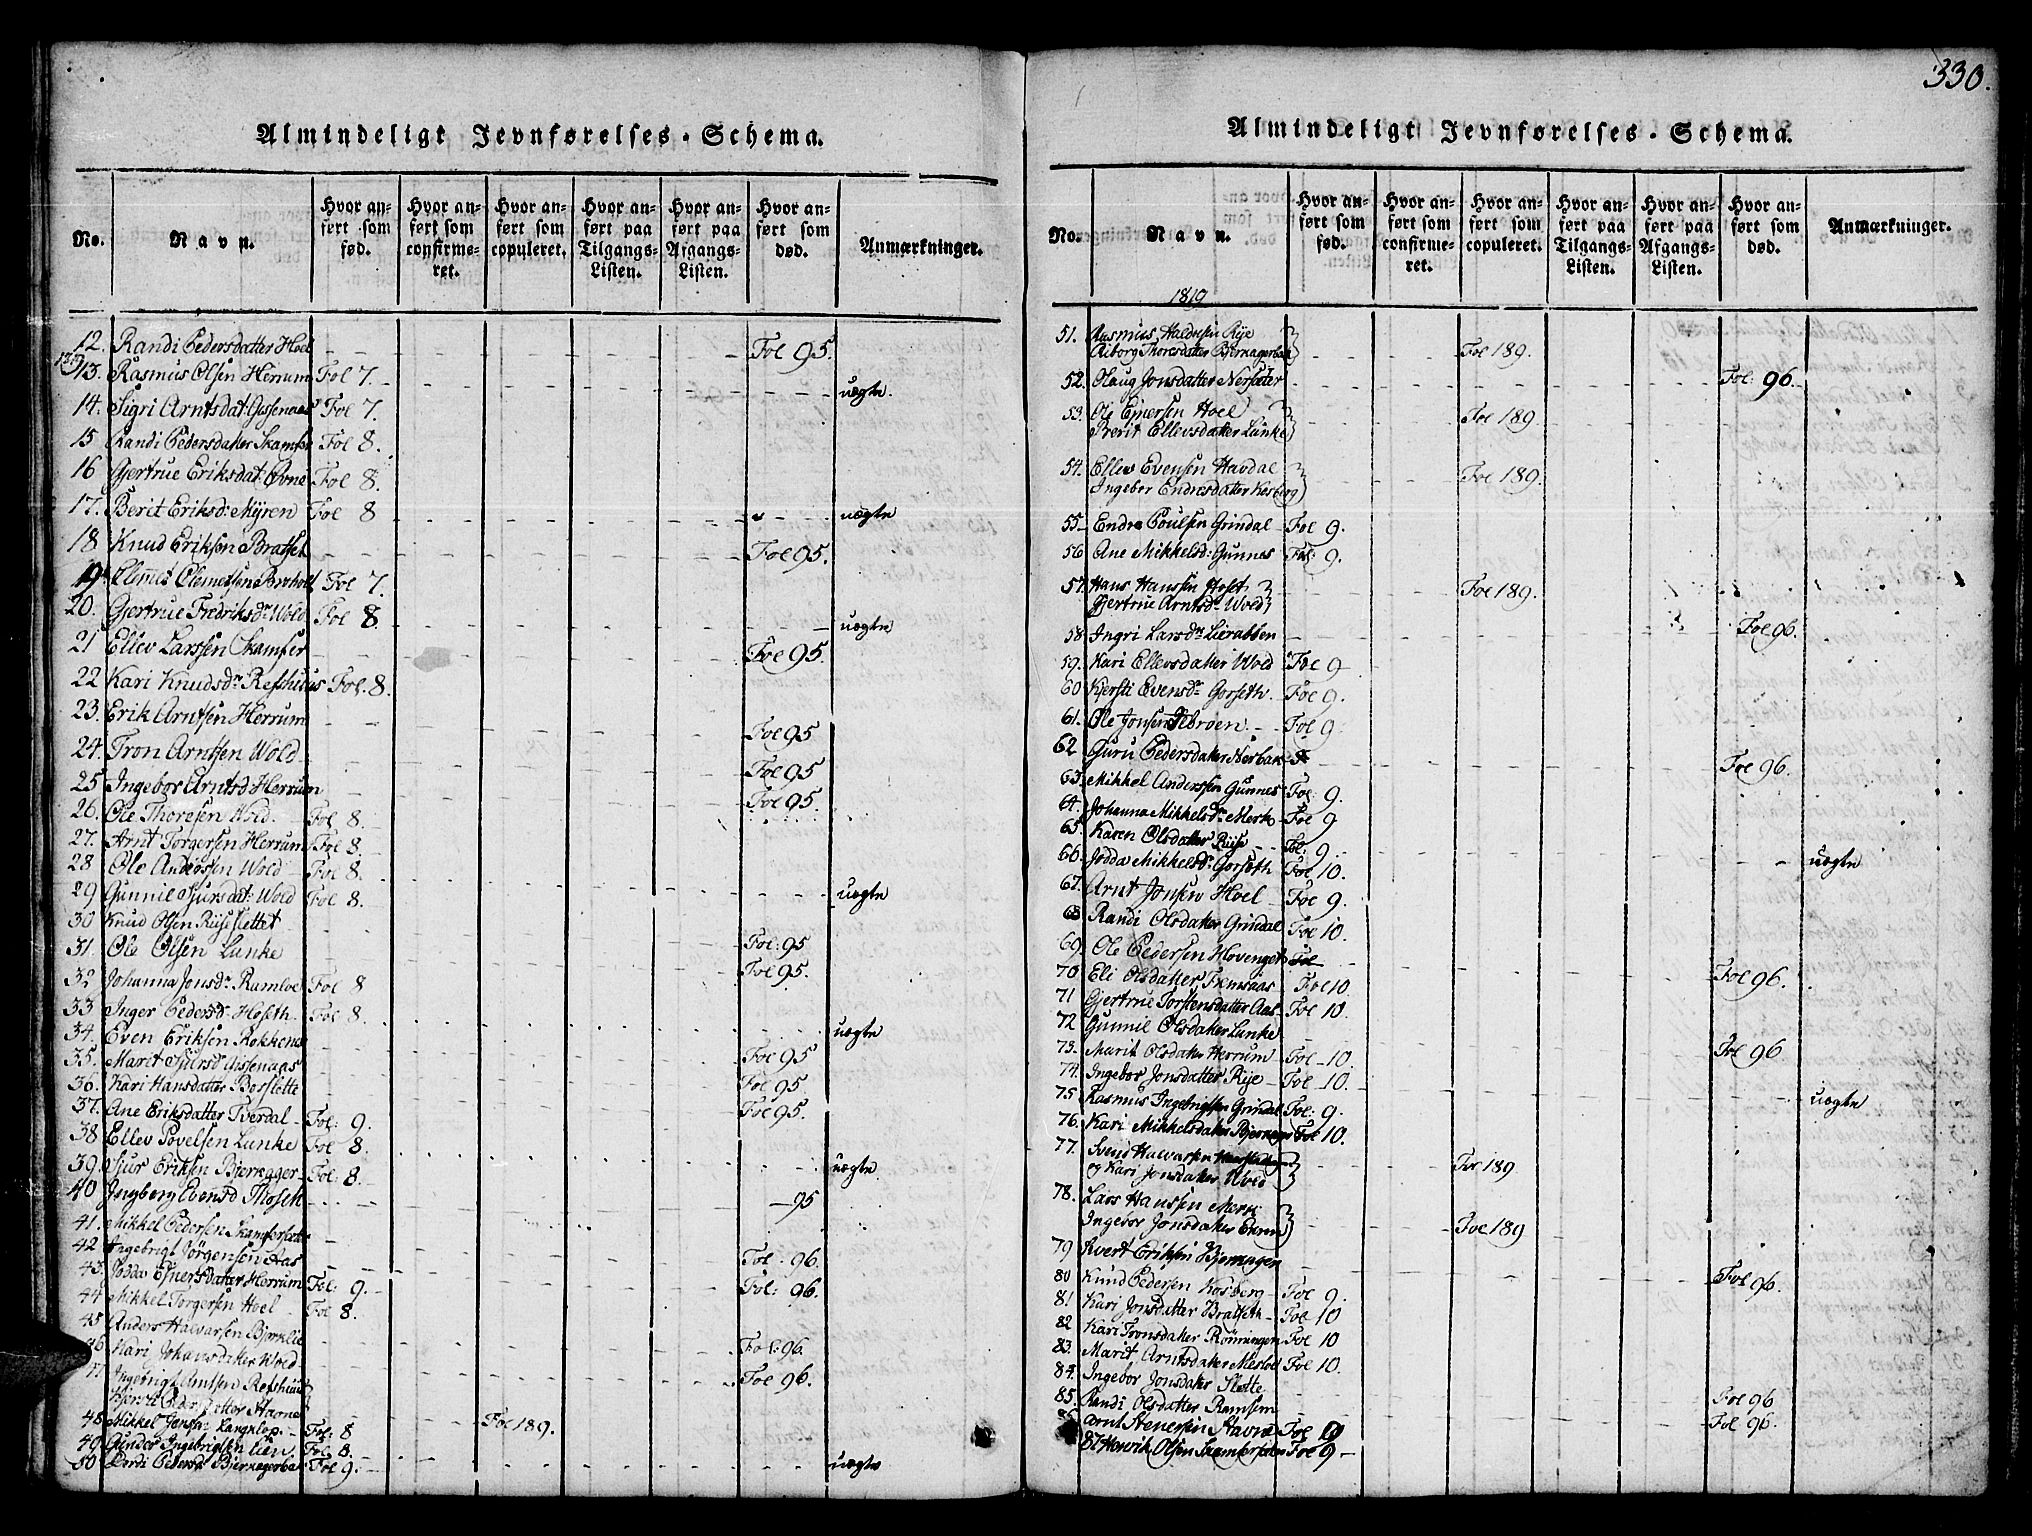 330.
Almindeligt Jevnførelses-Schema.
No. Navn. Hvor anført som født. Hvor anført som confirmeret. Hvor anført som copuleret. Hvor anført paa Tilgangs-Listen. Hvor anført paa Afgangs-Listen. Hvor anført som død. Anmærkninger.
12. Randi Pedersdatter Hoel Fol 95.
1819
13. Rasmus Olsen Herrum Fol 7. uægte.
14. Sigri Arntsdat: Gissenaas Fol 7.
15 Randi Pedersdatter Skamfer Fol 8.
16 Gjertrue Eriksdat: Ovne Fol 8.
17. Berit Eriksd: Myren Fol 8 uægte
18 Knud Eriksen Bratset Fol 95.
19. Clemet Clemetsen Fol 7.
20. Gjertrue Fredriksdr Wold Fol 8. uægte
21 Ellev Larssen Skamfer Fol 95.
22 Kari Knudsdr Refshuus Fol. 8.
23. Erik Arntsen Herrum Fol 95
24. Tron Arntsen Wold Fol 95
25 Ingebor Arntsd Herrum Fol 95.
26. Ole Thoresen Wold. Fol 8.
27. Arnt Torgersen Herrum Fol 8.
28 Ole Anderssen Wold Fol 8.
29 Gunnil Sjursdat: Wold Fol 8. uægte
30 Knud Olsen Riise slettet Fol: 95
31. Ole Olsen Lunke Fol 95.
32 Johanna Jonsdr Ramloe Fol 8
33 Inger Pedersdr Hoseth. Fol 8. uægte
34. Even Eriksen Rokkenes Fol 95
35. Marit Sjursd Gissenaas Fol 95
36. Kari Hansdatter Bosslette Fol 95.
37. Ane Eriksdatter Tverdal Fol: 9.
38 Ellev Povelsen Lunke Fol 8.
39. Sjur Eriksen Bjerkager Fol 8. uægte.
40 Ingberg Evensd Moseth 95
41. Mikkel Pedersen Skamfersæter Fol. 96.
42 Ingebrigt Jørgensen Aas Fol: 96.
43. Jodda Ejnersdatter Herrum Fol: 9.
44 Mikkel Torgersen Hoel Fol 8.
45 Anders Halvarsen Bjørklie Fol: 96.
46 Kari Johansdatter Wold Fol 96.
47 Ingebrigt Arntsen Refshuus
Kjersti Pedersdatter Haarne Fol 189.
48. Mikkel Jonsen Langklep. Fol: 8
49. Gunder Ingebrigtsen Lien. Fol: 8. uægte
50 Lordi Pedersd Bjerkagerbak Fol 9.
Almindeligt Jevnførelses-Schema.
No. Navn. Hvor anført som fød. Hvor anført som confirmeret. Hvor anført som copuleret. Hvor anført paa Tilgangs-Listen. Hvor anført paa Afgangs-Listen. Hvor anført som død. Anmærkninger.
1819
51. Rasmus Haldosen Rije
Aiborg Thoresdatter Bjerkagerbak Fol 189.
52. Olaug Jonsdatter Nersæter Fol: 96.
53. Ole Ejnersen Hoel
Berit Ellevsdatter Lunke Fol 189.
54. Ellev Evensen Havdal
Ingebor Endresdatter Kosberg Fol 189.
55. Endre Poulsen Grindal Fol 9.
56 Ane Mikkelsd: Gunnes Fol: 9.
57. Hans Hanssen Stolst
Gjertrue Arntsdr Wold Fol 189.
58 Ingri Larsdr Lierabben Fol 96.
59. Kari Ellevsdatter Wold Fol 9
60 Kjersti Evensdr Gorseth. Fol 9.
61. Ole Jonsen Ilbroen Fol 9.
62 Guru Pedersdatter Nerbak Fol 96.
63. Mikkel Anderssen Gunnes Fol. 9.
64. Johanna Mikkelsdr Merk Fol 9
65. Karen Olsdatter Riise Fol: 9.
66. Jodda Mikkelsdr Gorseth Fol 10. uægte
67. Arnt Jonsen Hoel Fol 9.
68 Randi Olsdatter Grindal Fol 10.
69. Ole Pedersen Hovenget Fol Fol 96.
70 Eli Olsdatter Fremaas Fol 10
71 Gjertrue Torstensdatter Aas Fol 10.
72 Gunnil Olsdatter Lunke Fol 96
73. Marit Olsdatter Herrum Fol 10.
74. Ingebor Jonsdatter Rije Fol 10.
75 Rasmus Ingebrigtsen Grindal Fol: 9. uægte
76. Kari Mikkelsdatter Bjerkager Fol 10.
77. Svend Halvarsen
og Kari Jonsdatter Wold Fol 189
78. Lars Hanssen Merk
Ingebor Jonsdatter Ekren Fol 189
79 Kvert Eriksen Bjerkager Fol 96.
80 Knud Pedersen Kosberg Fol 9.
81. Kari Jonsdatter Bratseth Fol 10
82 Kari Tronsdatter Rönningen Fol 10
83. Marit Arntsdatter Mesloe Fol 10.
84. Ingebor Jonsdatter Slette Fol 96
85. Randi Olsdatter Ramsem Fol 96.
86 Arnt Stenersen Stavne Fol 9
87 Henrik Olsen Skamfersæter Fol 9